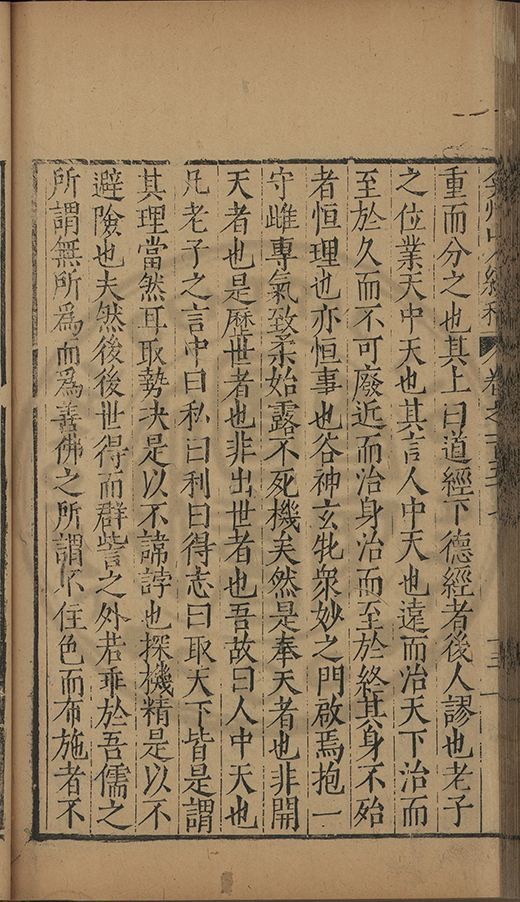 卷之
重而分之也其上曰道經下德經者後人謬也老子
之位業天中天也其言人中天也遠而治天下治而
至於久而不可廢近而治身治而至於終其身不殆
者恒理也亦恒事也谷神玄牝衆妙之門啟焉抱一
守雌專氣致柔始露不死機矣然是奉天者也非開
天者也是歷世者也非出世者也吾故曰人中天也
凡老子之言中曰私曰利曰得志曰取天下皆是謂
其理當然耳取勢決是以不諦誖也探機精是以不
避險也夫然後後世得而群訾之外若乖於吾儒之
所謂無所爲而爲善佛之所謂不住色而布施者不